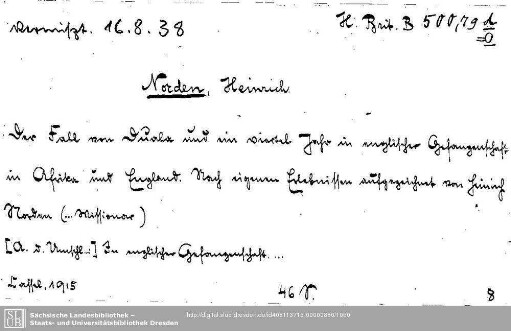 vermißt. 16.8.38
H. Brit. B 500,79 d
=0
Norden, Heinrich
Der Fall von Duala und ein viertel Jahr in englischer Gefangenschaft
in Afrika und England. Nach eigenen Erlebnissen aufgezeichnet von Heinrich
Norden (... Missionar)
[A. d. Umschl.:] In englischer Gefangenschaft. ...
Cassel, 1915
46 S.
8
SLUB
Sächsische Landesbibliothek –
Staats- und Universitätsbibliothek Dresden